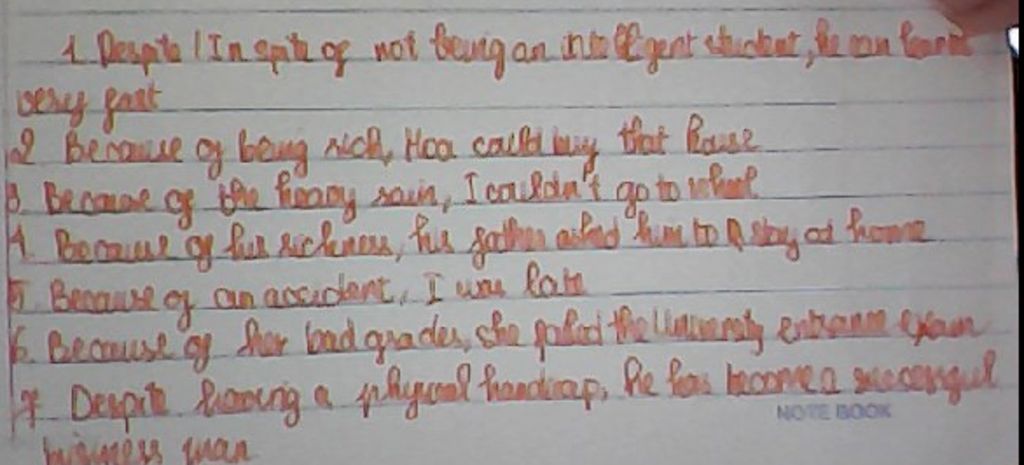 1. Despite / In spite of not being an intelligent student, he can learn
very fast
2 Because of being rich, Hoa could buy that house
3. Because of the heavy rain, I couldn't go to school
4. Because of his sickness, his father asked him to stay at home
5. Because of an accident, I was late
6. Because of her bad grades, she failed the University entrance exam
7 Despite having a physical handicap, he has become a successful
NOTE BOOK
business man